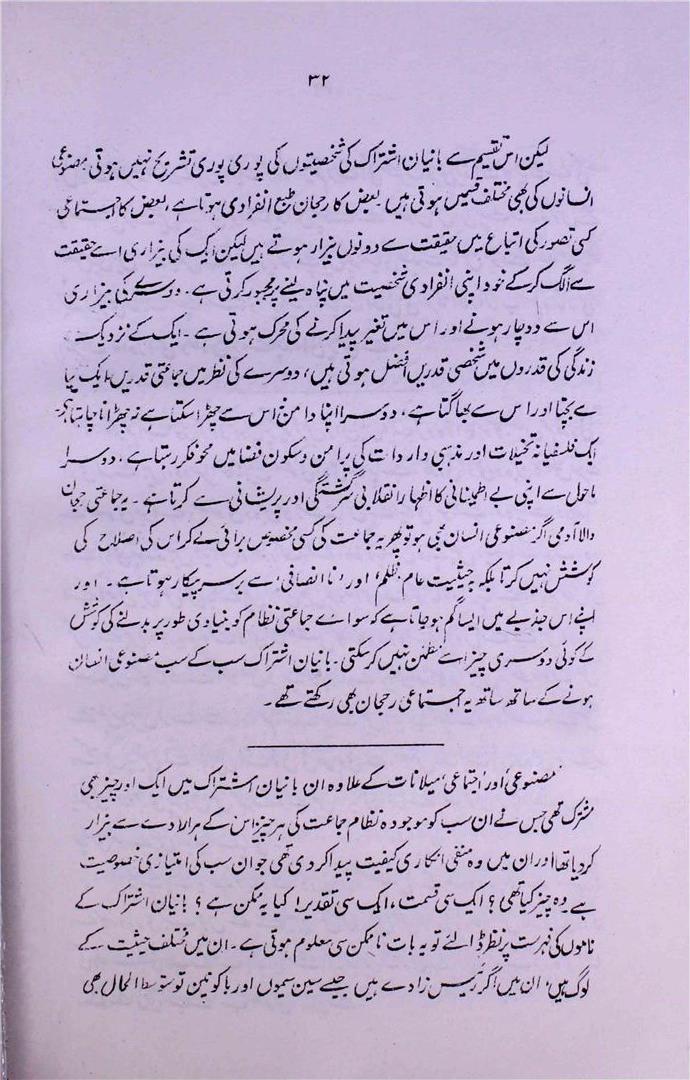 ۳۲
لیکن اس تقسیم سے بانیان اشتراک کی شخصیتوں کی پوری پوری تشریح نہیں ہوتی مصنوعی
انسانوں کی بھی مختلف قسمیں ہوتی ہیں بعض کا رجحان طبع انفرادی ہوتا ہے، بعض کا اجتماعی
کسی تصور کی اتباع میں حقیقت سے دونوں بیزار ہوتے ہیں لیکن ایک کی بیزاری اسے حقیقت
سے الگ کر کے خود اپنی انفرادی شخصیت میں پناہ لینے پر مجبور کرتی ہے۔ دوسرے کی بیزاری
اس سے دوچار ہونے اور اس میں تغیر پیدا کرنے کی محرک ہوتی ہے۔ ایک کے نزدیک
زندگی کی قدروں میں شخصی قدریں افضل ہوتی ہیں، دوسرے کی نظر میں جماعتی قدریں۔ ایک
سے بچتا اور اس سے بھاگتا ہے، دوسرا اپنا دامن اس سے چھڑا سکتا ہے نہ چھڑانا چاہتا ہے۔
ایک فلسفیانہ تخیلات اور مذہبی واردات کی پرامن و سکون فضا میں محو فکر رہتا ہے، دوسرا
ماحول سے اپنی بے اطمینانی کا اظہار انقلابی سرگشتگی اور پریشانی سے کرتا ہے۔ یہ جماعتی رجحان
والا آدمی اگر مصنوعی انسان بھی ہو تو پھر یہ جماعت کی کسی مخصوص برائی لے کر اس کی اصلاح کی
کوشش نہیں کرتا بلکہ بحیثیت عام 'ظلم' اور 'ناانصافی' سے برسرپیکار ہوتا ہے۔ اور
اپنے اس جذبے میں ایسا گم ہوجاتا ہے کہ سوائے جماعتی نظام کو بنیادی طور پر بدلنے کی کوشش
کے کوئی دوسری چیز اسے مطمئن نہیں کرسکتی۔ بانیان اشتراک سب کے سب مصنوعی انسان
ہونے کے ساتھ ساتھ یہ اجتماعی رجحان بھی رکھتے تھے۔
'مصنوعی' اور 'اجتماعی' میلانات کے علاوہ ان بانیان اشتراک میں ایک اور چیز بھی
مشترک تھی جس نے ان سب کو موجودہ نظام جماعت کی ہر چیز اس کے ہر ارادے سے بیزار
کر دیا تھا اور ان میں وہ منفی انکاری کیفیت پیدا کر دی تھی جو ان سب کی امتیازی خصوصیت
ہے وہ چیز کیا تھی؟ ایک سی قسمت، ایک سی تقدیر! کیا یہ ممکن ہے؟ بانیان اشتراک کے
ناموں کی فہرست پر نظر ڈالئے تو یہ بات ناممکن سی معلوم ہوتی ہے۔ ان میں مختلف حیثیت کے
لوگ ہیں، ان میں اگر رئیس زادے ہیں جیسے سین سیموں اور باکونین تو متوسط الحال بھی